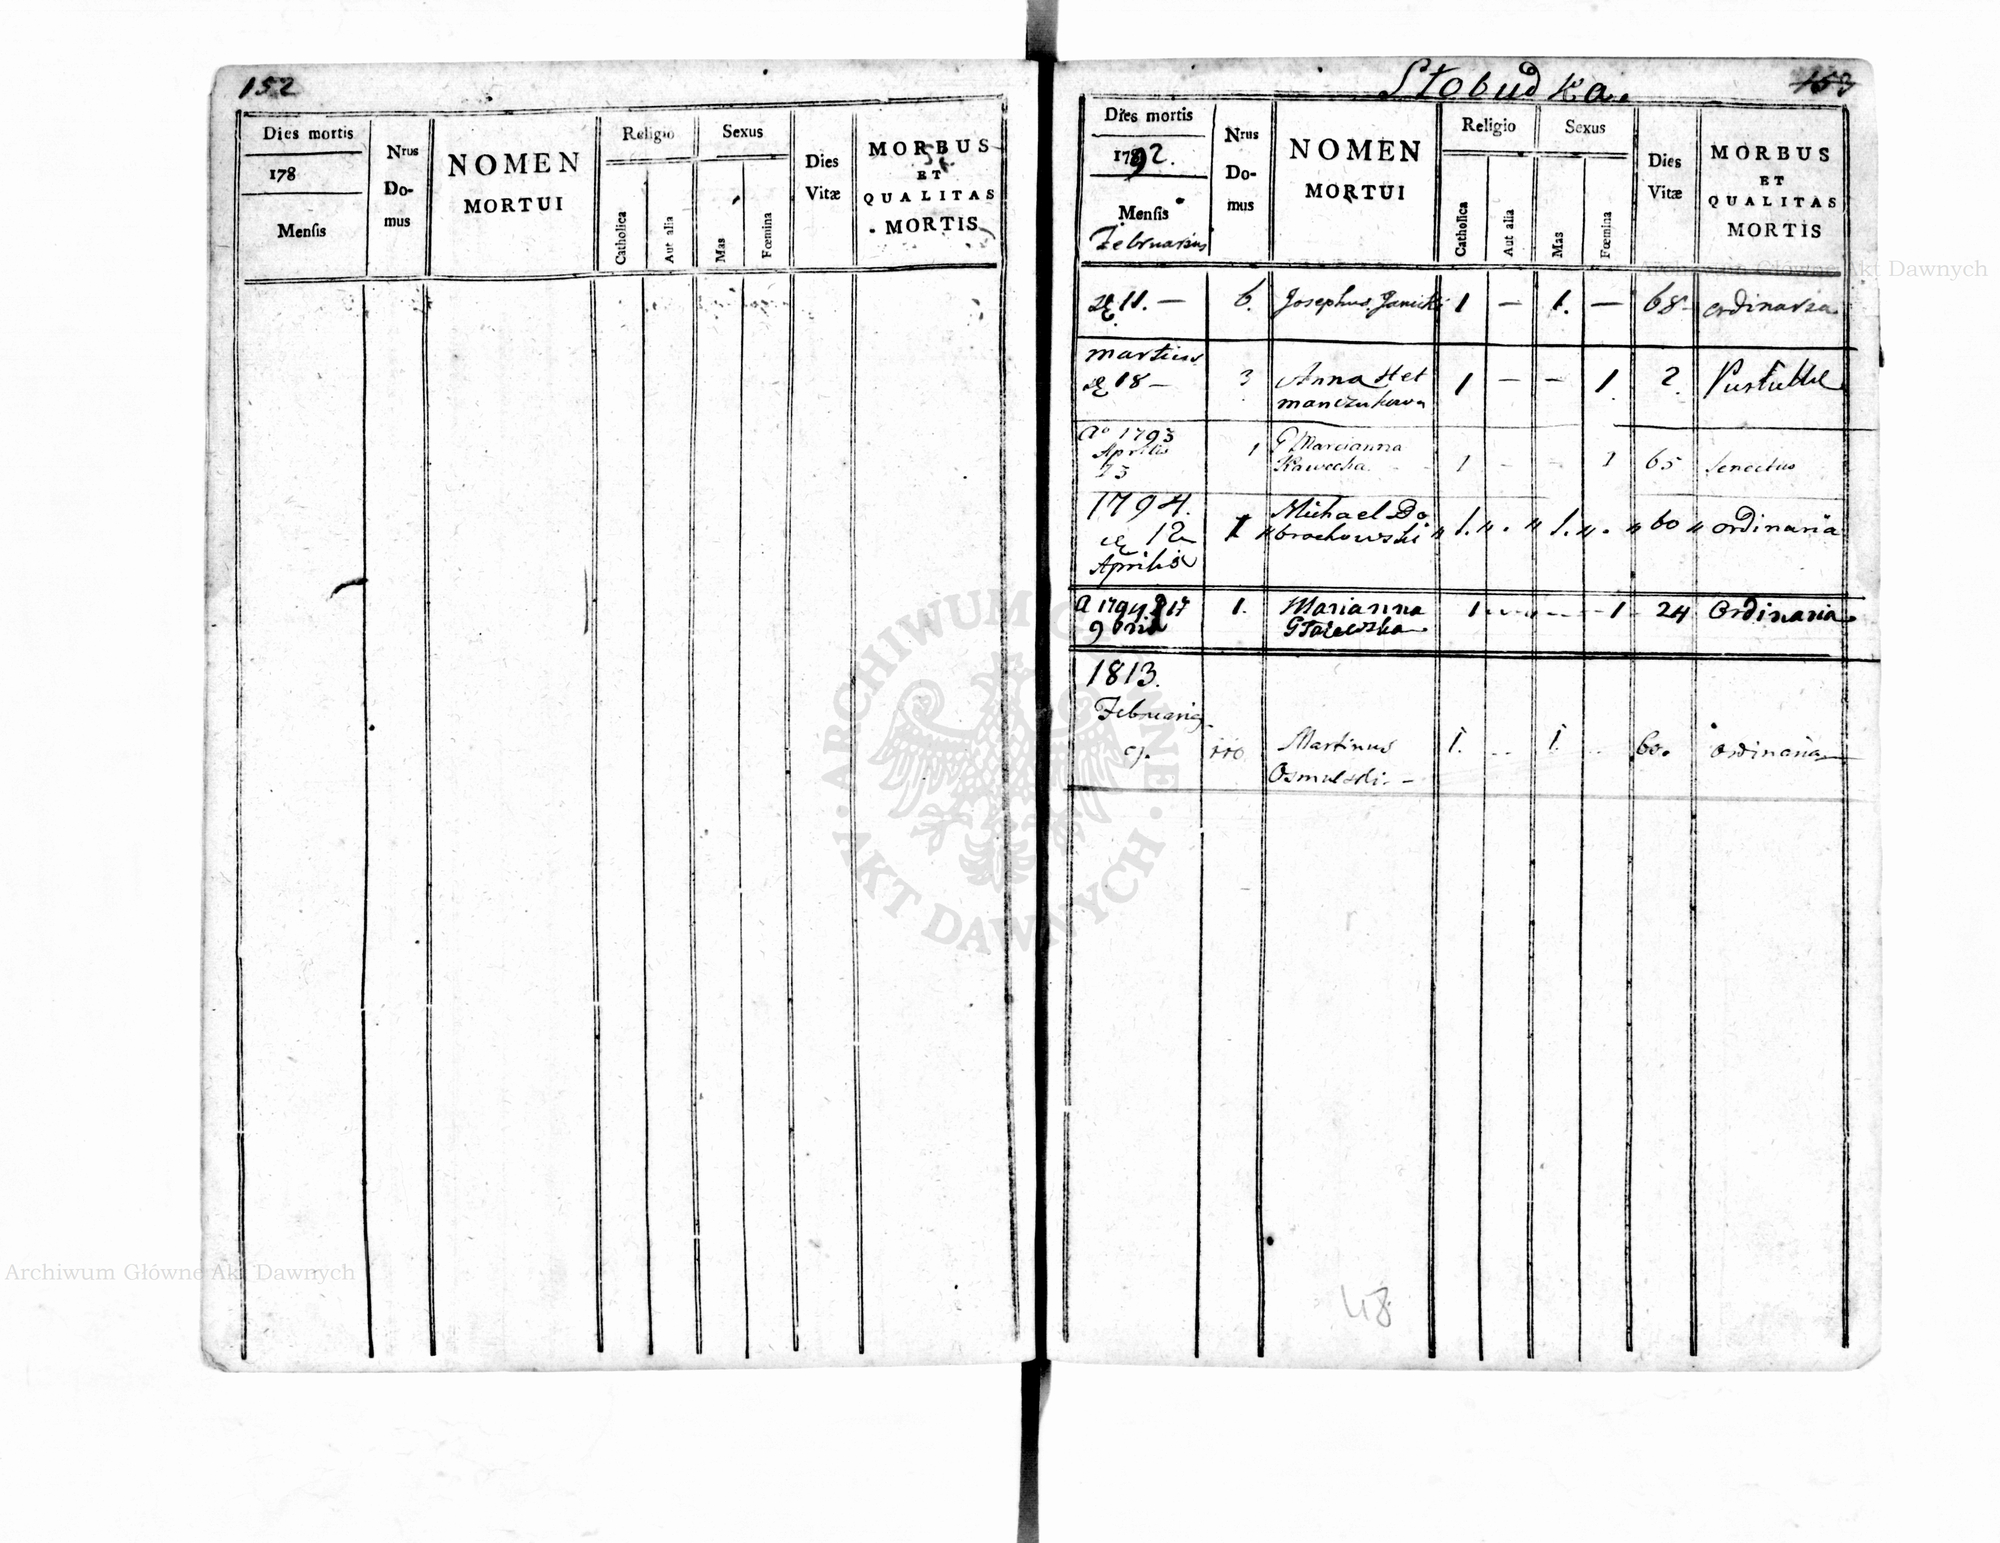 152
Dies mortis
178
Mensis
Nrus Do-mus
NOMEN
MORTUI
Religio
Catholica
Aut alia
Sexus
Mas
Fœmina
Dies
Vitæ
MORBUS
ET
QUALITAS
MORTIS
Stobudka.
153
Dies mortis
1792.
Mensis
Februarius
Nrus
Do-
mus
NOMEN
MORTUI
Religio
Catholica
Aut alia
Sexus
Mas
Fœmina
Dies
Vitæ
MORBUS
ET
QUALITAS
MORTIS
11. — 6. Josephus Janicki 1 — 1. — 68 – ordinaria
martius
18 — 3 Anna Het 1 — — 1 2
manczukowa
Ao 1793
Aprilis 1 Marcianna
Kawecka 1 - - 1 65 Senectus
1794.
12 1 Michael Do
brochowski 1. 1. 60 ordinaria
Aprilis
A 1794 17 1. Marianna 1 1 24 Ordinaria
9bris
1813.
Februarij
9. 110 Martinus 1. 1. 60. ordinaria
Osmulski. –
48
ARCHIWUM GŁÓWNE AKT DAWNYCH
Archiwum Główne Akt Dawnych
Archiwum Główne Akt Dawnych